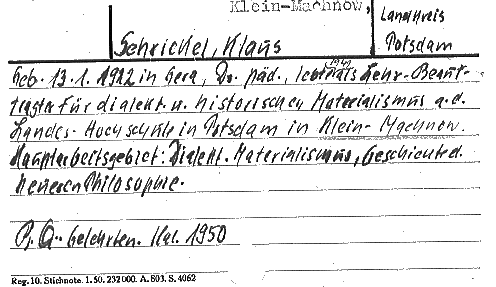 Klein-Machnow,
Landkreis
Potsdam
Schrickel, Klaus
Geb. 13.1.1922 in Gera, Dr. päd., lebt als Lehr-Beauf-
1949
tragter für dialekt. u. historischen Materialismus a.d.
Landes-Hochschule in Potsdam in Klein-Machnow.
Hauptarbeitsgebiet: Dialekt. Materialismus, Geschichte d.
neueren Philosophie.
Q. Gelehrten. Kal. 1950
Reg. 10. Stichnote. 1. 50. 232000. A. 803. S. 4062